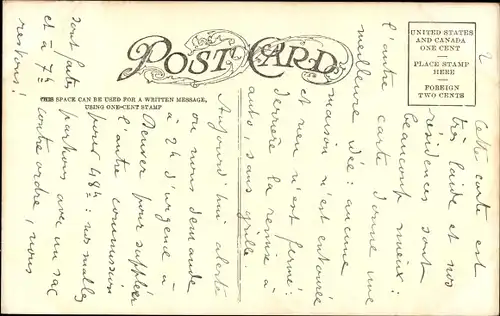 POST CARD
THIS SPACE CAN BE USED FOR A WRITTEN MESSAGE,
USING ONE-CENT STAMP
UNITED STATES
AND CANADA
ONE CENT
PLACE STAMP
HERE
FOREIGN
TWO CENTS
2
Cette carte est
très laide et nos
résidences sont
beaucoup mieux:
l'autre carte donne une
meilleure idée: aucune
maison n'est entourée
et rien n'est fermé:
derrière la remise à
auto, sans grille.
Aujourd'hui alerte
on nous demande
à 2h d'urgence à
Denver pour suppléer
l'autre commission
pour 48h: nos malles
sont faites
et à 7h
partons avec un sac
contre ordre, nous
restons!